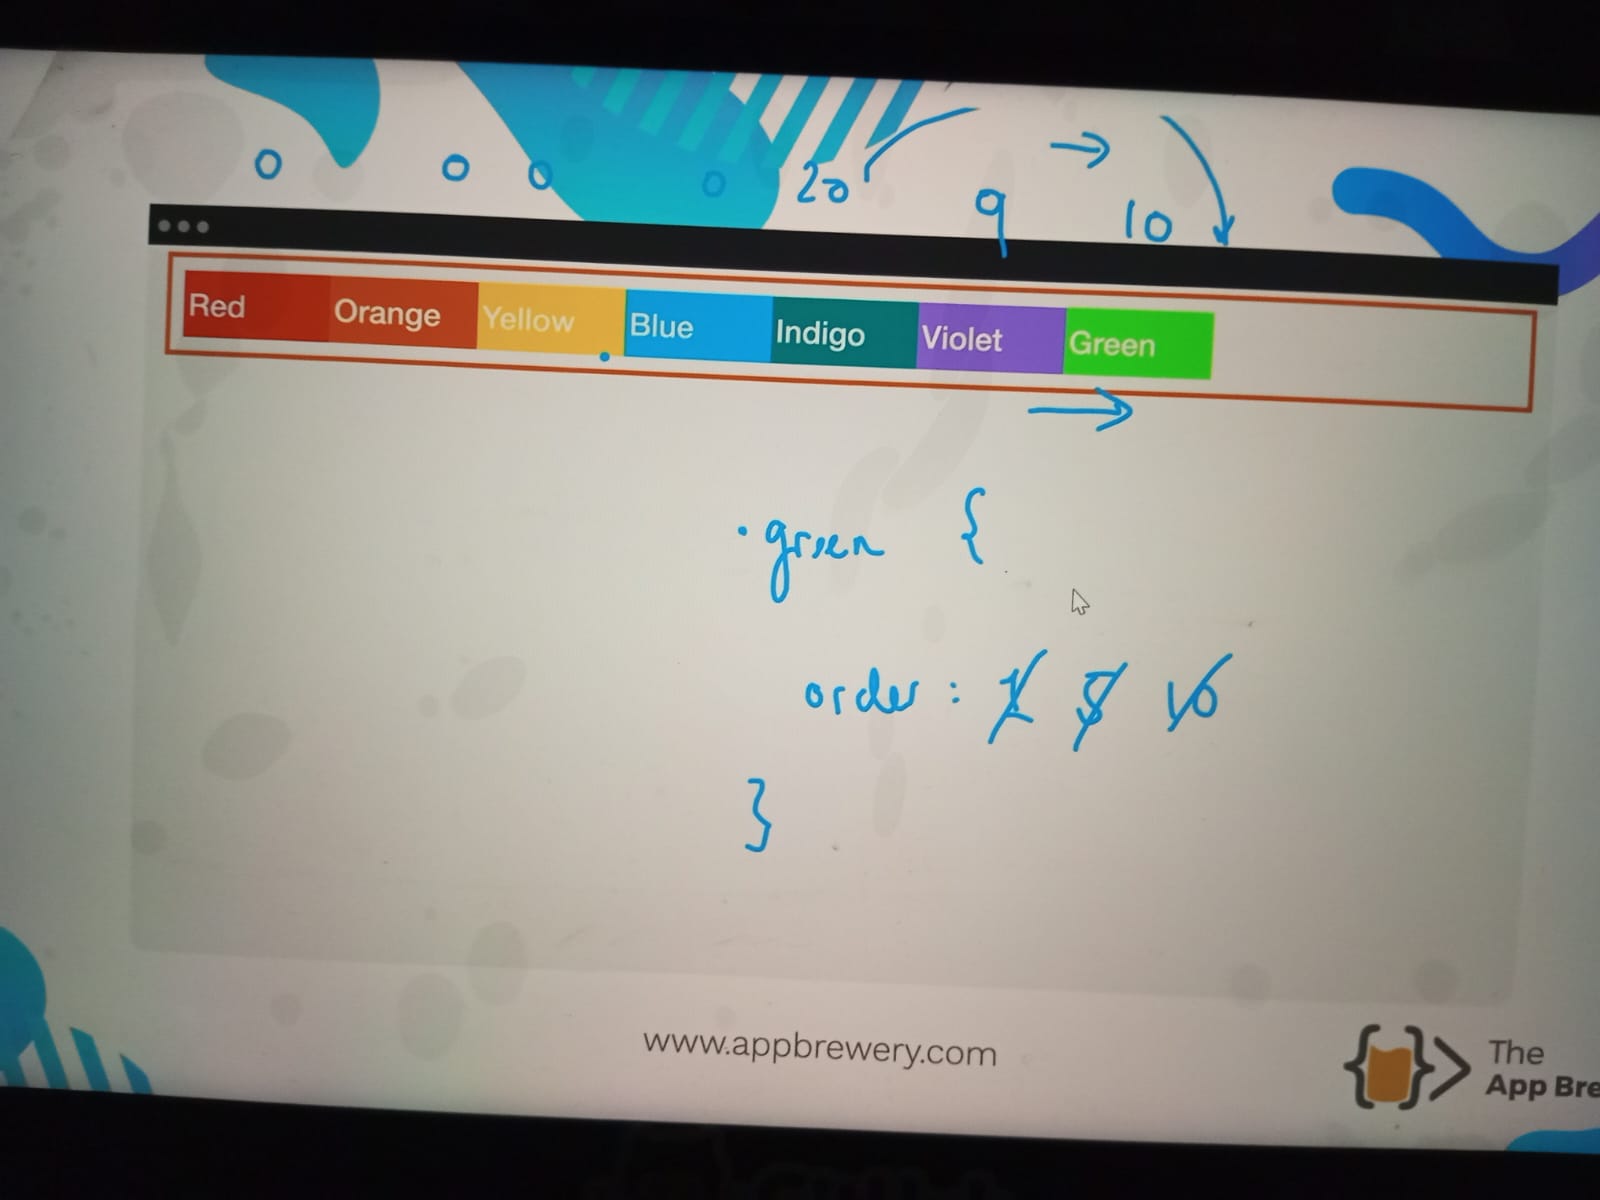 0 0 0 0 20 9 → 10
Red Orange Yellow Blue Indigo Violet Green
→
.green {
order:
}
www.appbrewery.com
The
App Bre